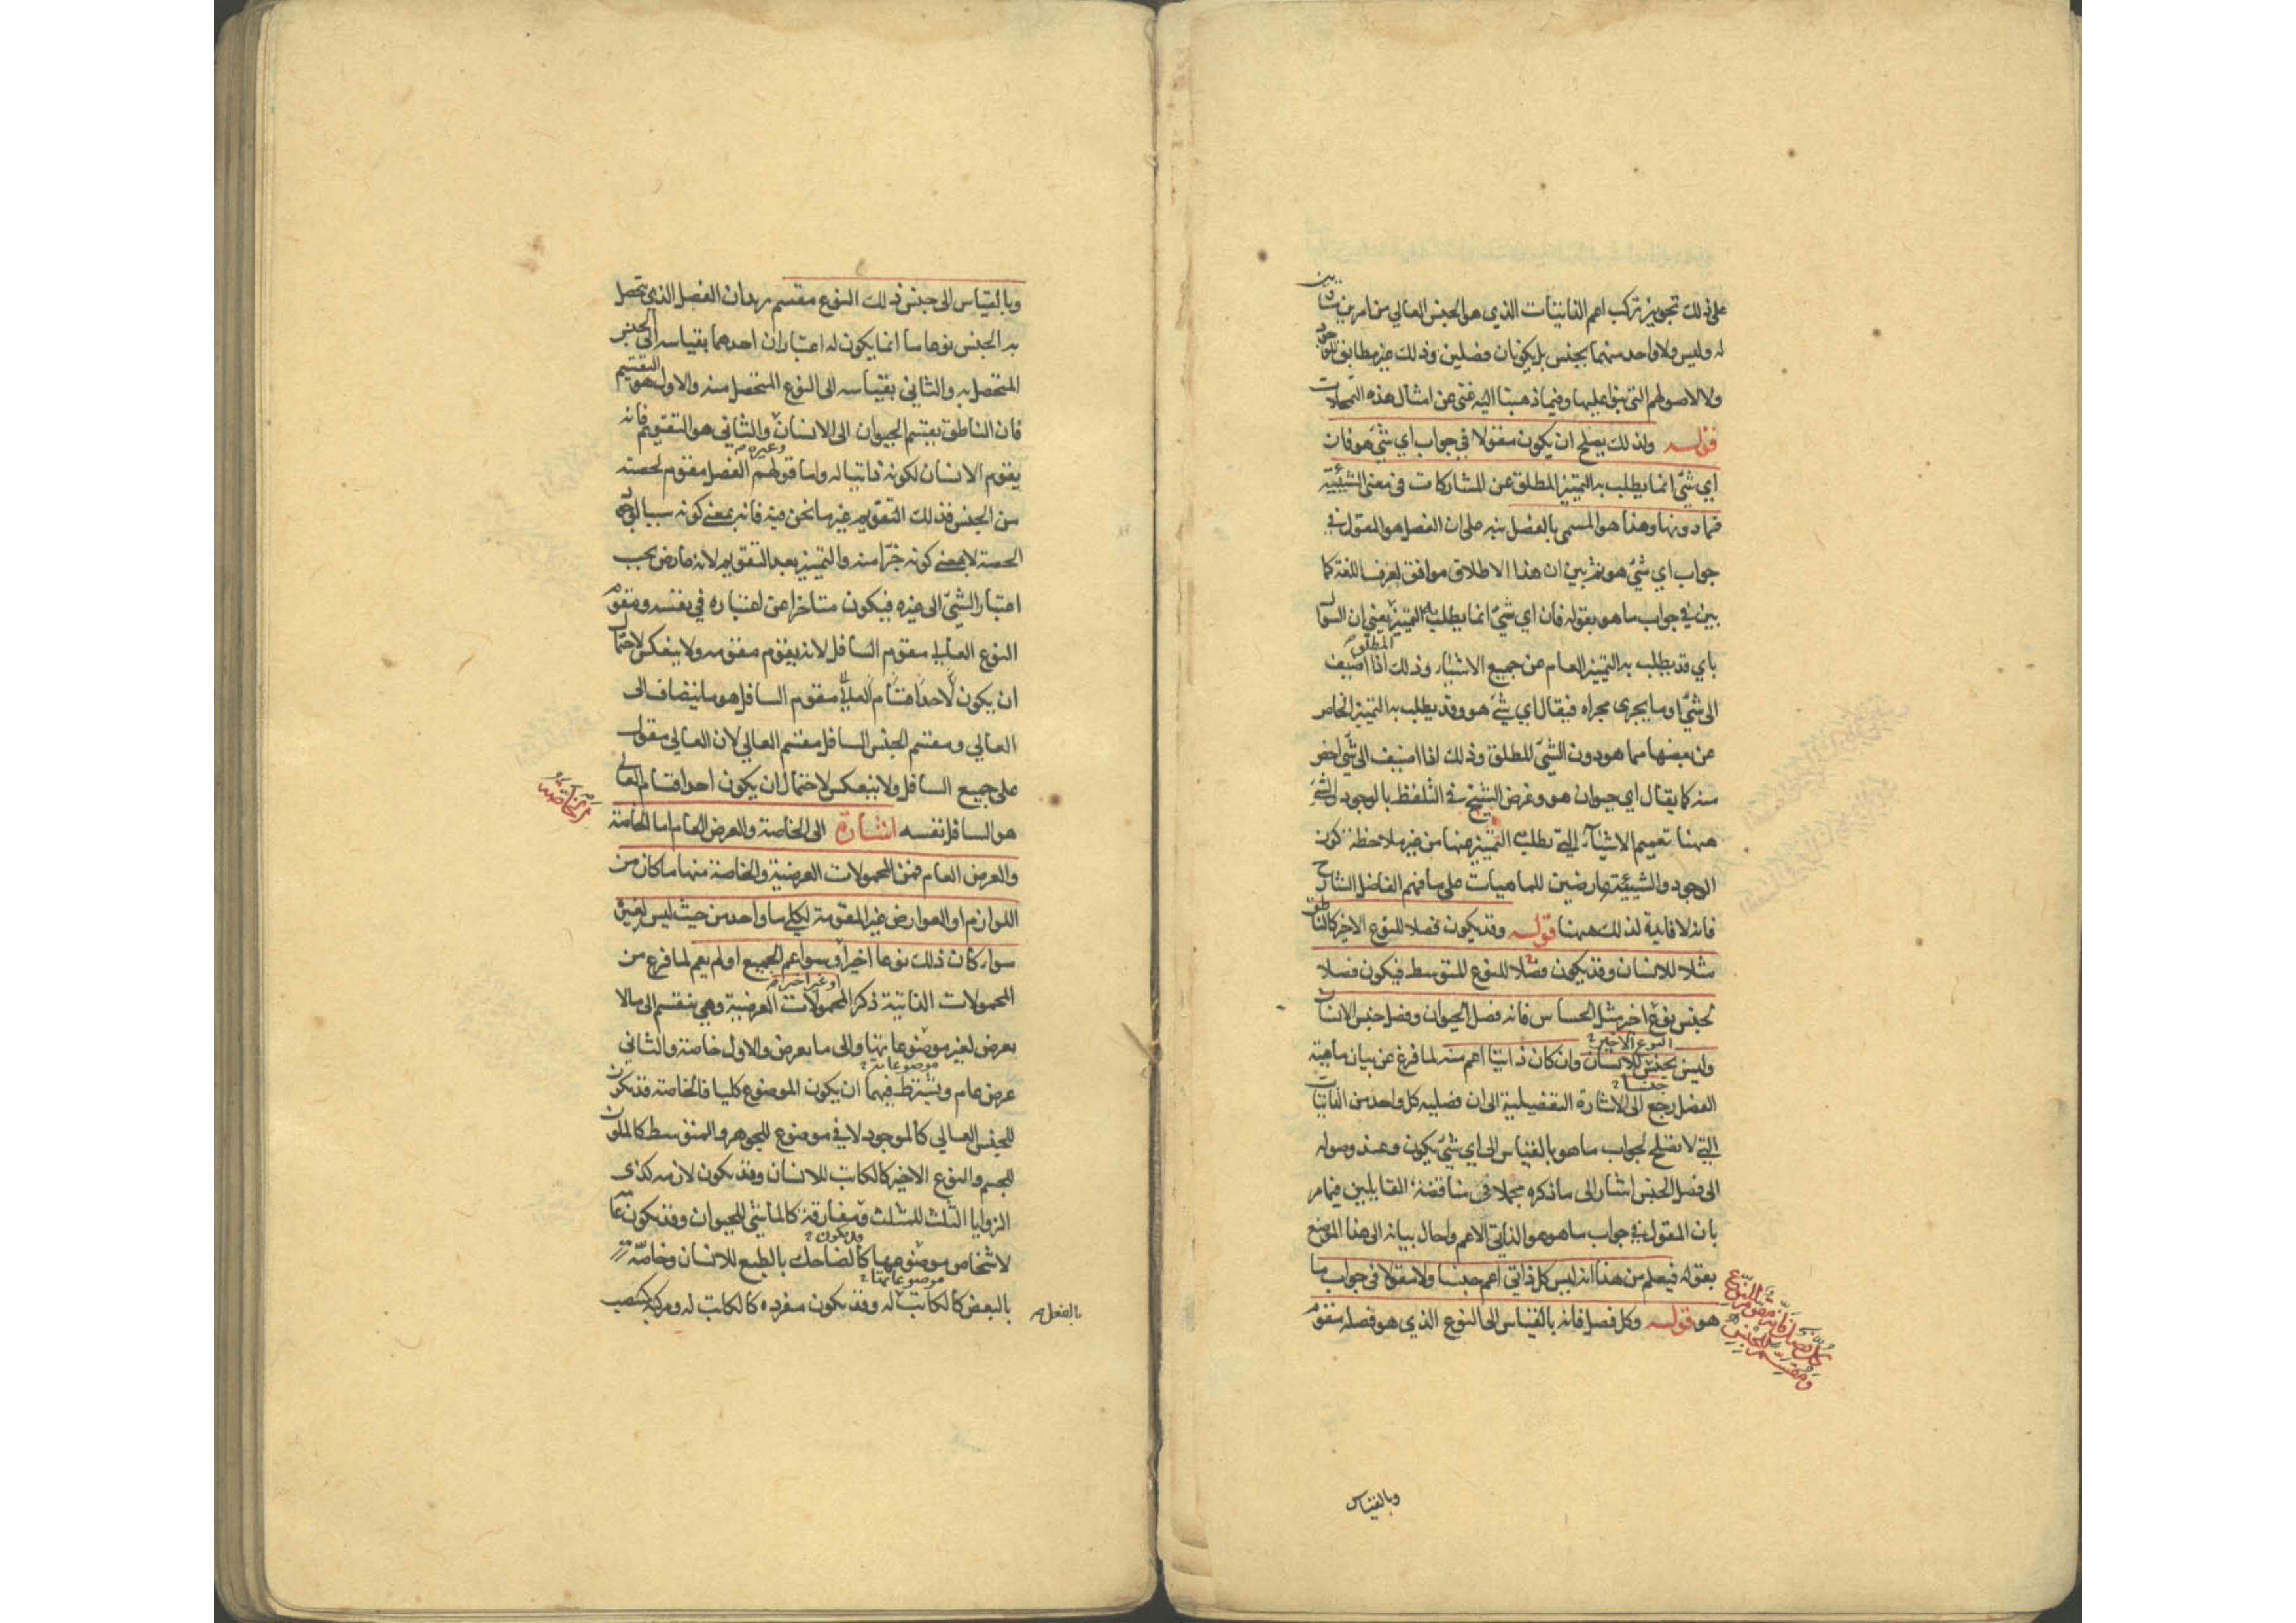 على ذلك تجويز تركب اعم الذاتيات الذي هو الجنس العالي من امرين يتساويان
له وليس ولا واحد منهما بجنس بل يكونان فصلين وذلك غير مطابق للوجود
ولا لاصولهم التي بنوا عليها وفيما ذهبنا اليه غنى عن امثال هذه التمحلات
قوله ولذلك يصلح ان يكون مقولا في جواب اي شيء هو فان
اي شيء انما يطلب به التمييز المطلق عن المشاركات في معنى الشيئية
فما دونها وهذا هو المسمى بالفصل نبه على ان الفصل هو المقول في
جواب اي شيء هو ثم بين ان هذا الاطلاق موافق لعرف اللغة كما
بين في جواب ما هو بقوله فان اي شيء انما يطلب به التمييز المطلق يعني ان السوال
باي قد يطلب به التمييز العام عن جميع الاشياء وذلك اذا اضيف
الى شيء او ما يجري مجراه فيقال اي شيء هو وقد يطلب به التمييز الخاص
عن بعضها مما هو دون الشيء المطلق وذلك اذا اضيف الى شيء اخص
منه كما يقال اي حيوان هو وغرض الشيخ في التلفظ بالوجود والشيء
ههنا تعميم الاشياء التي يطلب التمييز عنها من غير ملاحظة كون
الوجود والشيئية عارضين للماهيات على ما فهم الفاضل الشارح
فانه لا فايدة لذلك ههنا قوله وقد يكون فصلا للنوع الاخير كالناطق
مثلا للانسان وقد يكون فصلا للنوع المتوسط فيكون فصلا
لجنس نوع اخر مثل الحساس فانه فصل الحيوان وفصل جنس الانسان
النوع الاخير
وليس بجنس للانسان وان كان ذاتيا اعم منه لما فرغ عن بيان ماهية
جنسا
الفصل رجع الى الاشارة التفصيلية الى ان فصلية كل واحد من الذاتيات
التي لا تصلح لجواب ما هو بالقياس الى اي شيء يكون وعند وصوله
الى فصل الجنس اشار الى ما ذكره مجملا في مناقضة القايلين فيما مر
بان المقول في جواب ما هو هو الذاتي الاعم واحال بيانه الى هذا الموضع
بقوله فيعلم من هذا انه ليس كل ذاتي اعم جنسا ولا مقولا في جواب ما
هو قوله وكل فصل فانه بالقياس الى النوع الذي هو فصله مقوم
كل فصل فانه مقوم للنوع
ومقسم للجنس
وبالقياس
وبالقياس الى جنس ذلك النوع مقسم يريد ان الفصل الذي يتحصل
به الجنس نوعا ما انما يكون له اعتباران احدهما بقياسه الى الجنس
المتحصل به والثاني بقياسه الى النوع المتحصل منه والاول هو التقسيم
فان الناطق يقسم الحيوان الى الانسان وغيره والثاني هو التقويم فانه
يقوم الانسان لكونه ذاتيا له واما قولهم الفصل مقوم لحصته
من الجنس فذلك التقويم غير ما نحن فيه فانه بمعنى كونه سببا لوجود
الحصة لا بمعنى كونه جزأ منه والتمييز بعد التقويم لانه عارض بحسب
اعتبار الشيء الى غيره فيكون متاخرا عن اعتباره في نفسه ومقوم
النوع العالي مقوم السافل لانه يقوم مقومه ولا ينعكس لاحتمال
ان يكون مقوم السافل هو ما ينضاف الى
العالي ومقسم الجنس السافل مقسم العالي لان العالي مقول
على جميع السافل ولا ينعكس لاحتمال ان يكون احد اقسام العالي
هو السافل نفسه اشارة الى الخاصة والعرض العام اما الخاصة
والعرض العام فمن المحمولات العرضية والخاصة منها ما كان من
اللوازم او العوارض غير المقومة لكلي ما واحد من حيث ليس لغيره
سواء كان ذلك نوعا اخيرا او غير اخير وسواء عم الجميع او لم يعم لما فرغ من
المحمولات الذاتية ذكر المحمولات العرضية وهي ينقسم الى ما لا
يعرض لغير موضوعاتها والى ما يعرض والاول خاصة والثاني
موضوعاته
عرض عام ويشترط فيهما ان يكون الموضوع كليا فالخاصة قد يكون
للجنس العالي كالموجود لا في موضوع للجوهر والمتوسط كالملون
للجسم والنوع الاخير كالكاتب للانسان وقد يكون لازمه كذي
الزوايا الثلث للمثلث ومفارقة كالماشي للحيوان وقد يكون عامة
قد يكون
لاشخاص موضوعها كالضاحك بالطبع للانسان وخاصة
موضوعاتها
بالبعض كالكاتب له وقد يكون مفردة كالكاتب له ومركبة كمنتصب
بالفعل
الخاصة